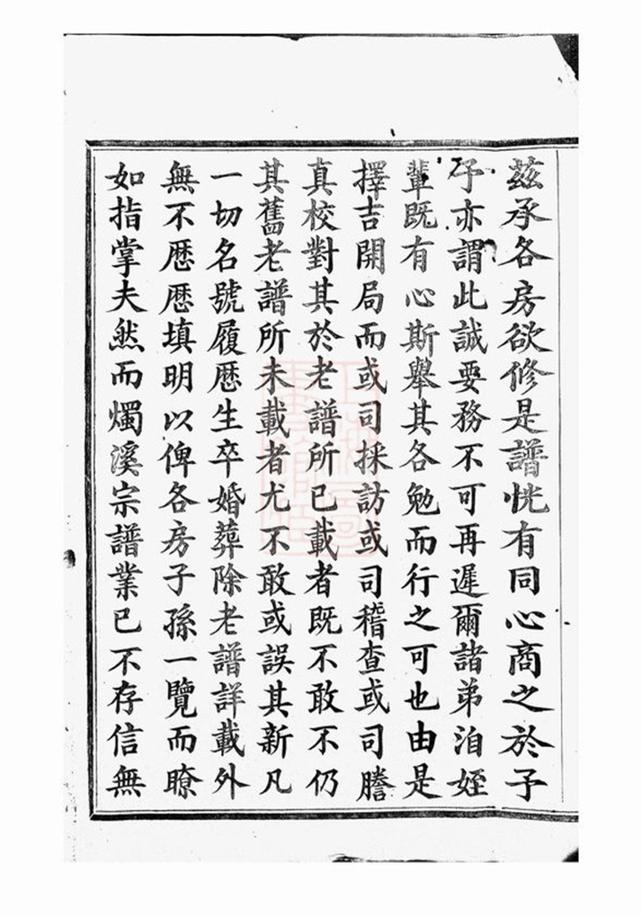 茲承各房欲修是譜恍有同心商之於予
予亦謂此誠要務不可再遲爾諸弟洎姪
輩既有心斯舉其各勉而行之可也由是
擇吉開局而或司採訪或司稽查或司謄
真校對其於老譜所已載者既不敢不仍
其舊老譜所未載者尤不敢或誤其新凡
一切名號履歷生卒婚葬除老譜詳載外
無不歷歷填明以俾各房子孫一覽而瞭
如指掌夫然而燭溪宗譜業已不存信無